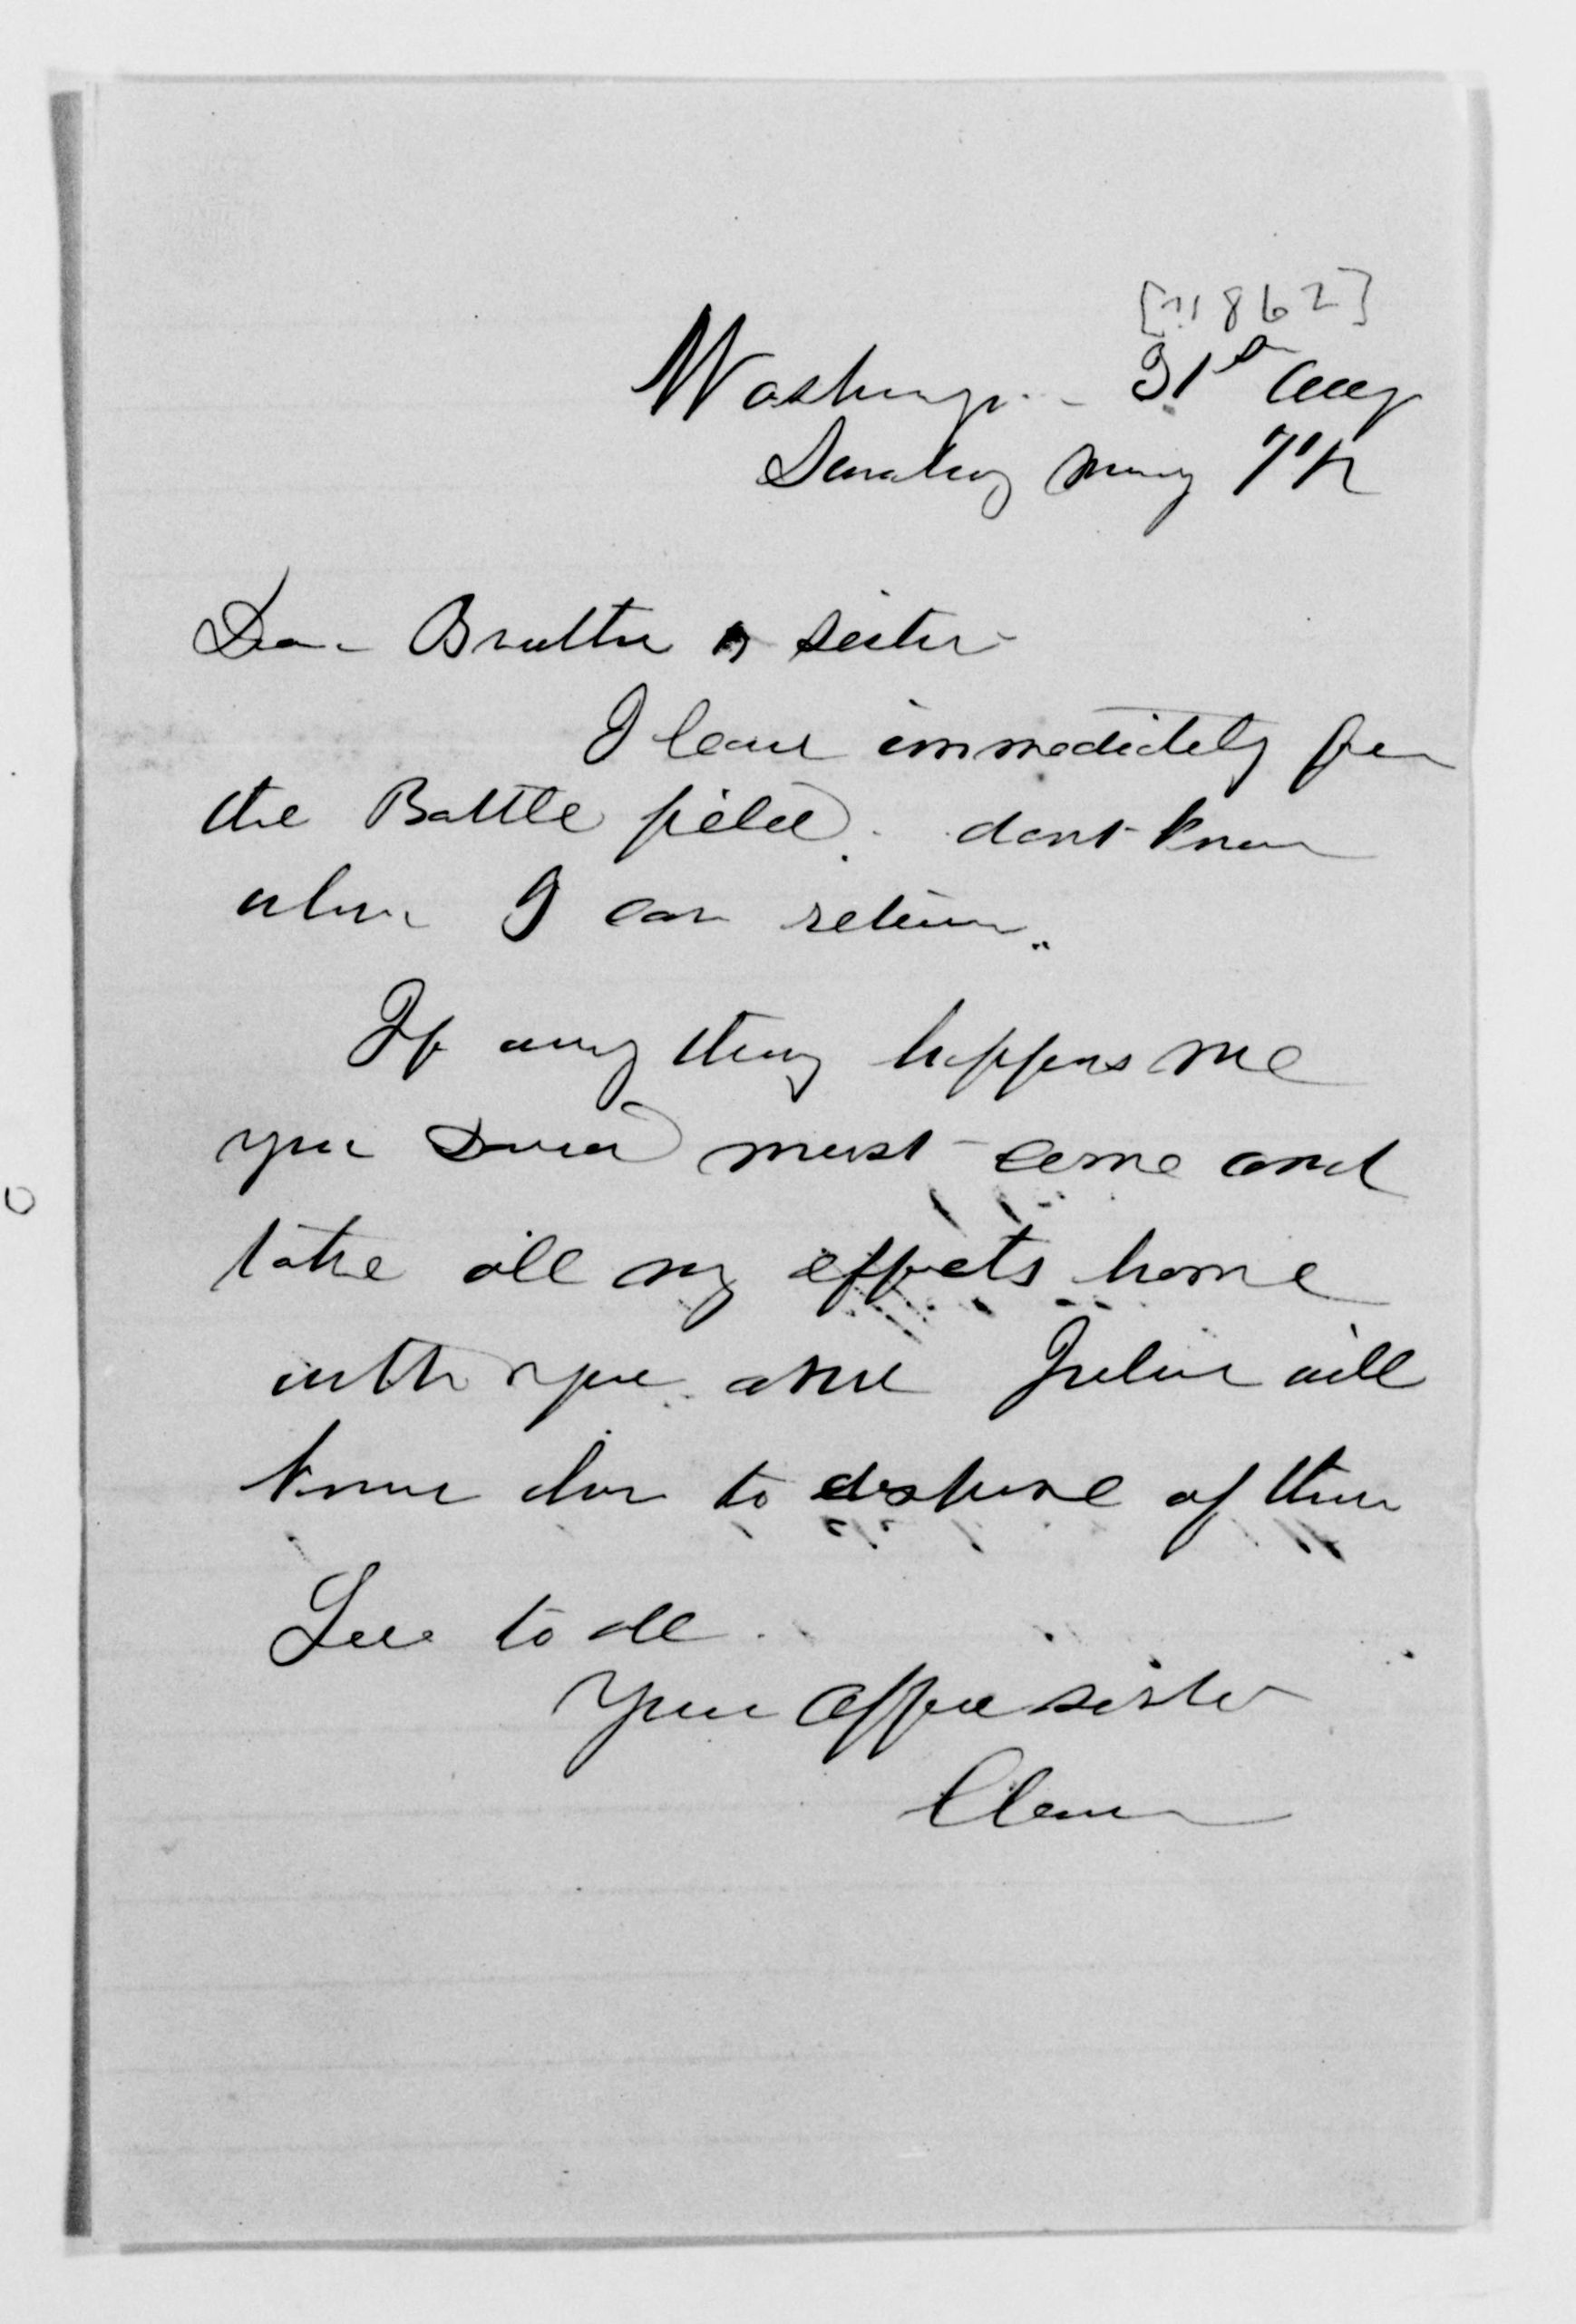 [1862]
Washington 31st Aug
Sunday morning
Dear Brother & Sister
I leave immediately for
the Battle field. dont know
when I can return.
If any thing happens me
you David must come and
take all my effects home
with you and Julia will
know how to dispose of them
Love to all.
Your affec sister
Clara